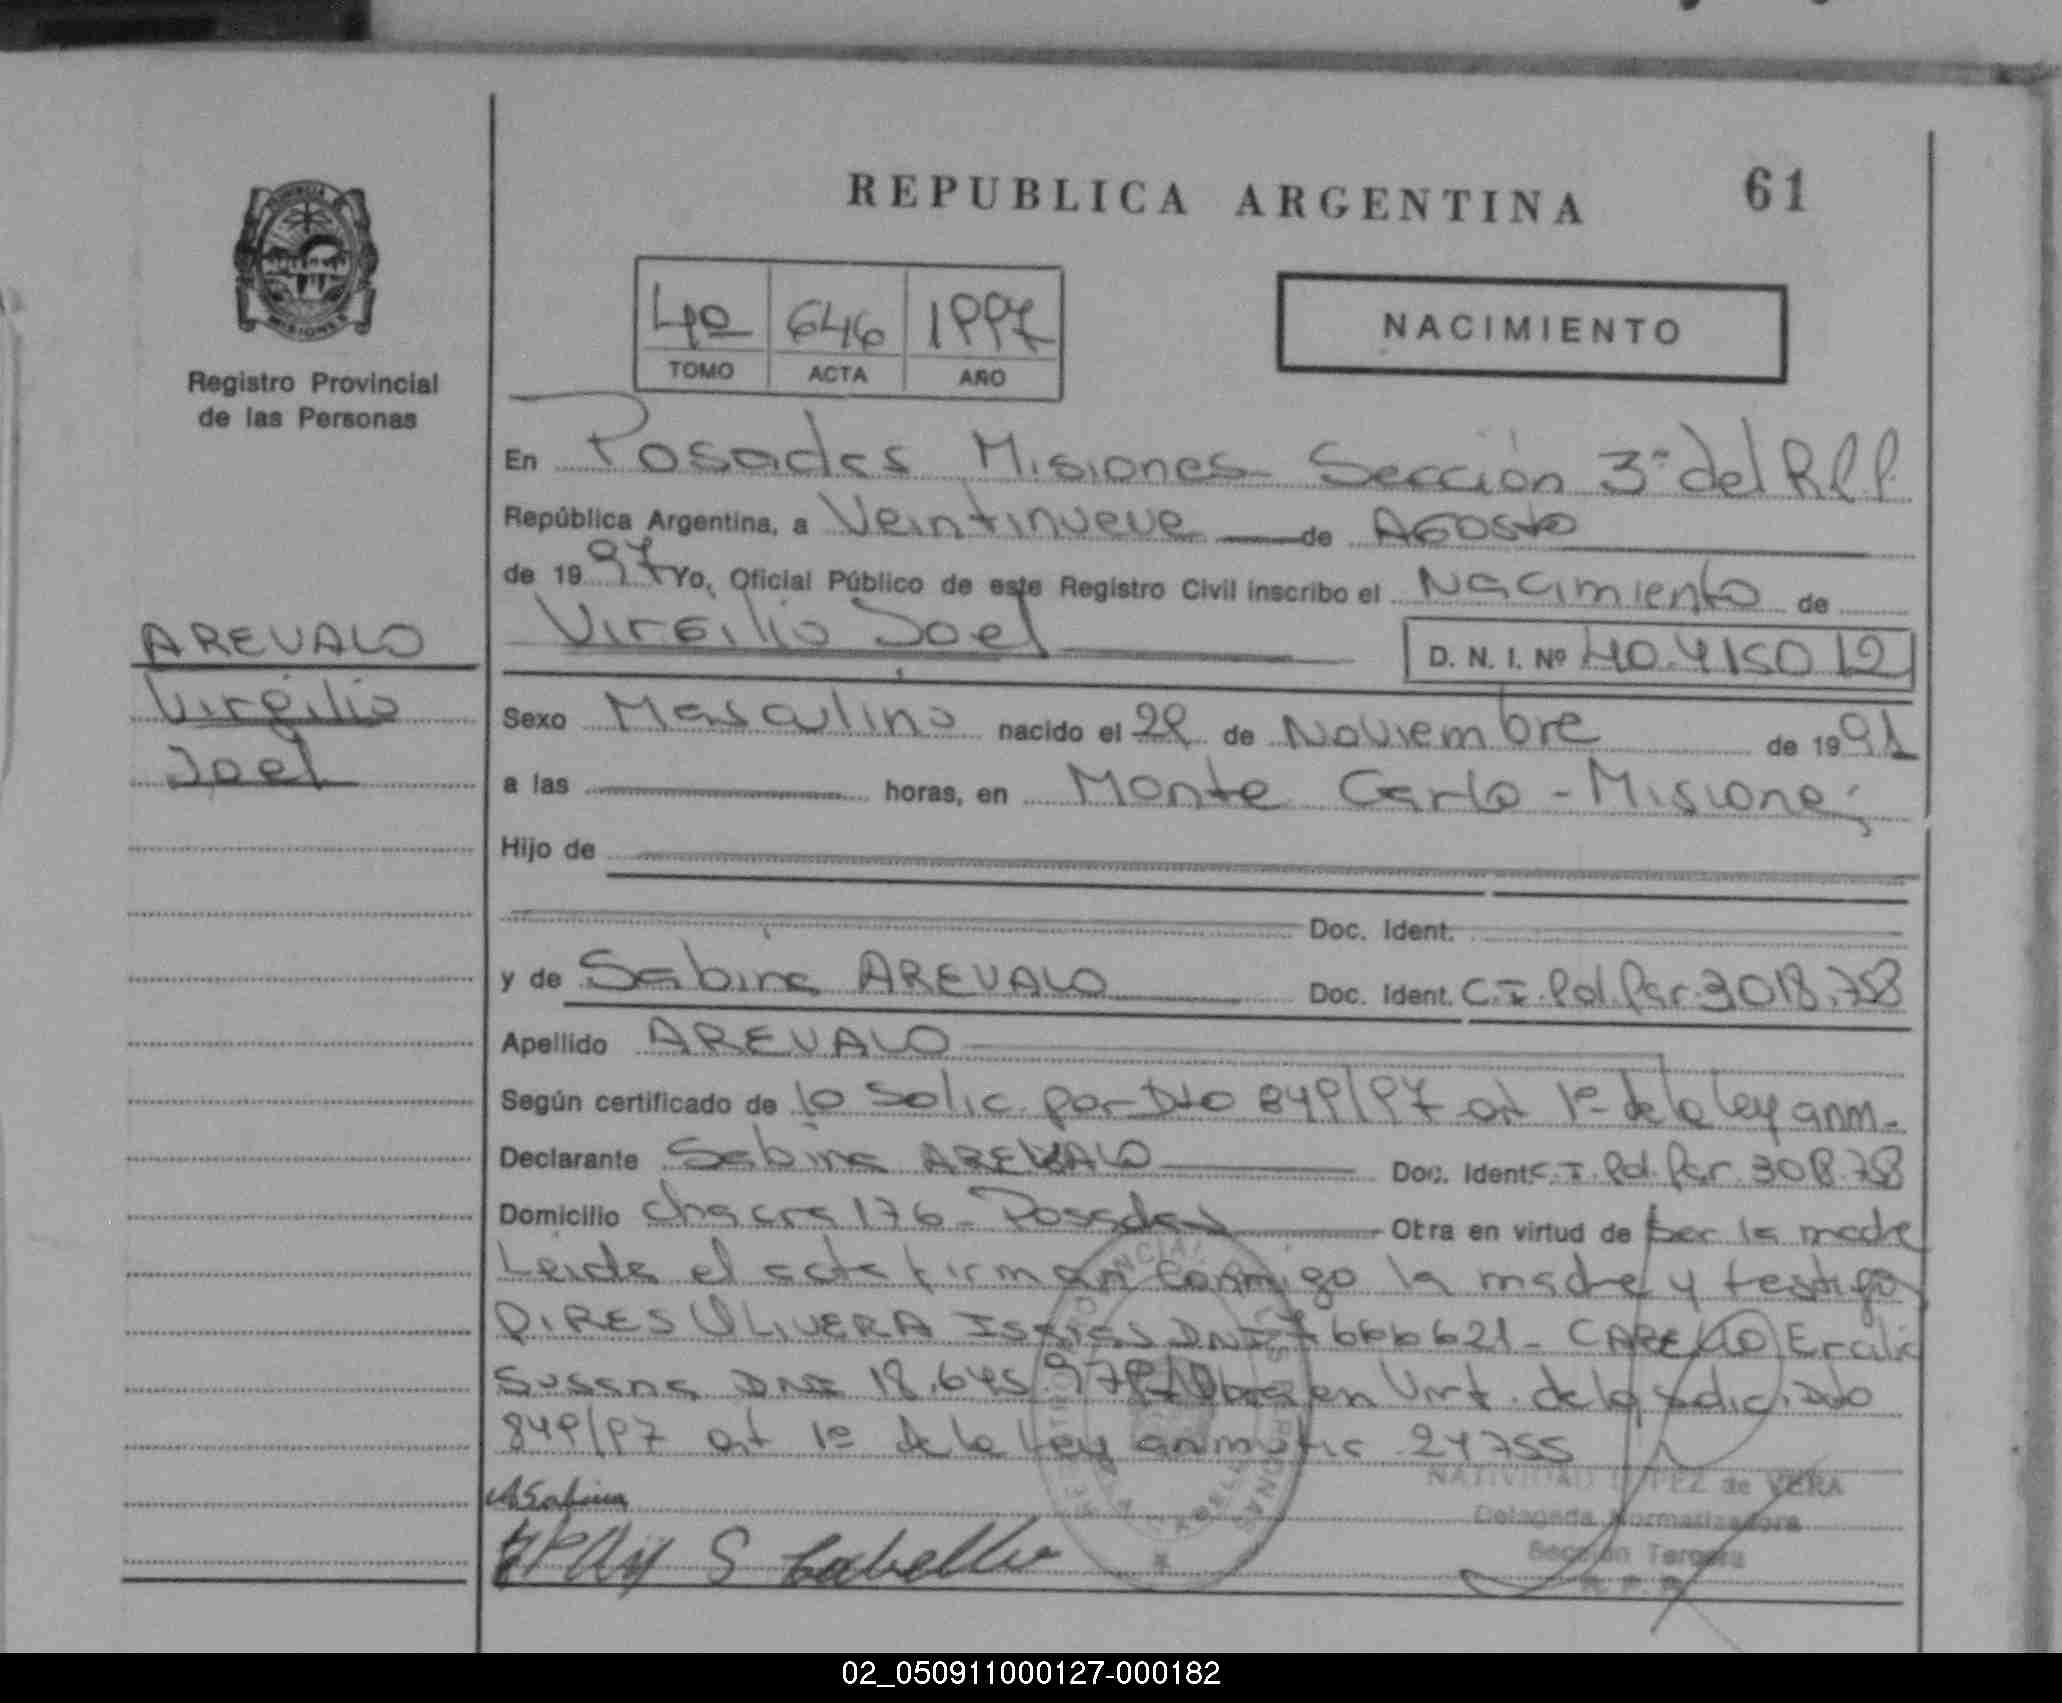 REPUBLICA ARGENTINA 61
Registro Provincial
de las Personas
MISIONES
4º 646 1997
TOMO ACTA AÑO
NACIMIENTO
En Posadas Misiones Sección 3ª del R.P.P.
República Argentina, a Veintinueve de Agosto
de 1997 Yo, Oficial Público de este Registro Civil inscribo el Nacimiento de
Virgilio Joel D. N. I. Nº 40.415012
AREVALO
Virgilio
Joel
Sexo Masculino nacido el de Noviembre de 1991
a las horas, en Monte Carlo - Misiones
Hijo de
Doc. Ident.
y de Sabina AREVALO Doc. Ident. C.I. Pol. Par. 3018.758
Apellido AREVALO
Según certificado de lo solic. por Dto 849/97 art 1º de la Ley
Declarante Sabina AREVALO Doc. Ident C.I. Pol. Par.
Domicilio chacra 176 - Posadas Otra en virtud de ser la madre
Leida el acta firman conmigo la madre y testigo
PIRES OLIVERA Isaias DNI 7666621 -
Susana DNI 18.645.979 en Virt. de lo
849/97 art 1º de la Ley 24755
NATIVIDAD LOPEZ de VERA
Delegada Normalizadora
Sección Tercera
R. P. P.
02_050911000127-000182